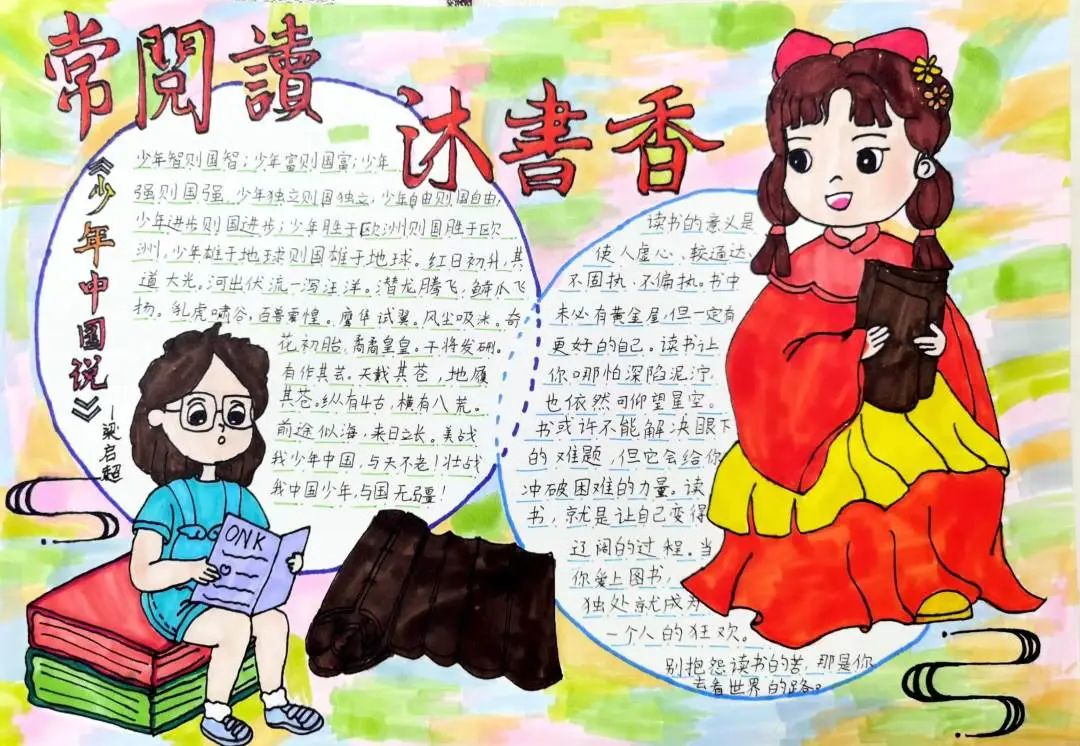 常閲讀
沐書香
《少年中国说》
—梁启超
少年智则国智；少年富则国富；少年
强则国强，少年独立则国独立，少年自由则国自由；
少年进步则国进步；少年胜于欧洲则国胜于欧
洲，少年雄于地球则国雄于地球。红日初升，其
道大光。河出伏流一泻汪洋。潜龙腾飞，鳞爪飞
扬。乳虎啸谷，百兽震惶。鹰隼试翼。风尘吸张。奇
花初胎，矞矞皇皇。干将发硎。
有作其芒。天戴其苍，地履
其苍。纵有千古，横有八荒。
前途似海，来日之长。美哉
我少年中国，与天不老！壮哉
我中国少年，与国无疆！
ONK
读书的意义是
使人虚心、较通达、
不固执、不偏执。书中
未必有黄金屋，但一定有
更好的自己。读书让
你哪怕深陷泥泞，
也依然可仰望星空。
书或许不能解决眼下
的难题，但它会给你
冲破困难的力量。读
书，就是让自己变得
辽阔的过程。当
你爱上图书，
独处就成为
一个人的狂欢。
别抱怨读书的苦，那是你
去看世界的路。